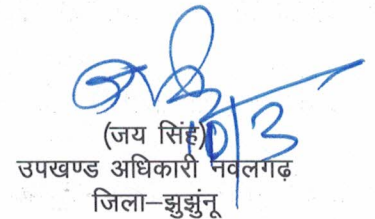 (जय सिंह)
10/3
उपखण्ड अधिकारी नवलगढ़
जिला–झुझुंनू